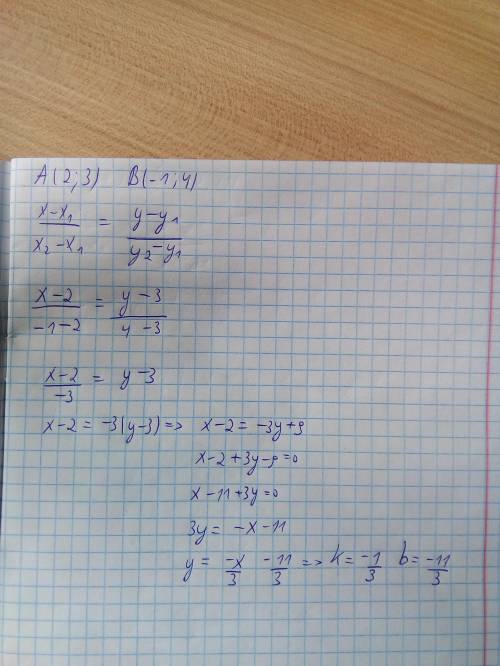 A(2;3) B(-1;4)
(x-x₁)/(x₂-x₁) = (y-y₁)/(y₂-y₁)
(x-2)/(-1-2) = (y-3)/(4-3)
(x-2)/(-3) = y-3
x-2 = -3(y-3) => x-2 = -3y+9
x-2+3y-9=0
x-11+3y=0
3y = -x-11
y = -x/3 -11/3 => k = -1/3 b = -11/3